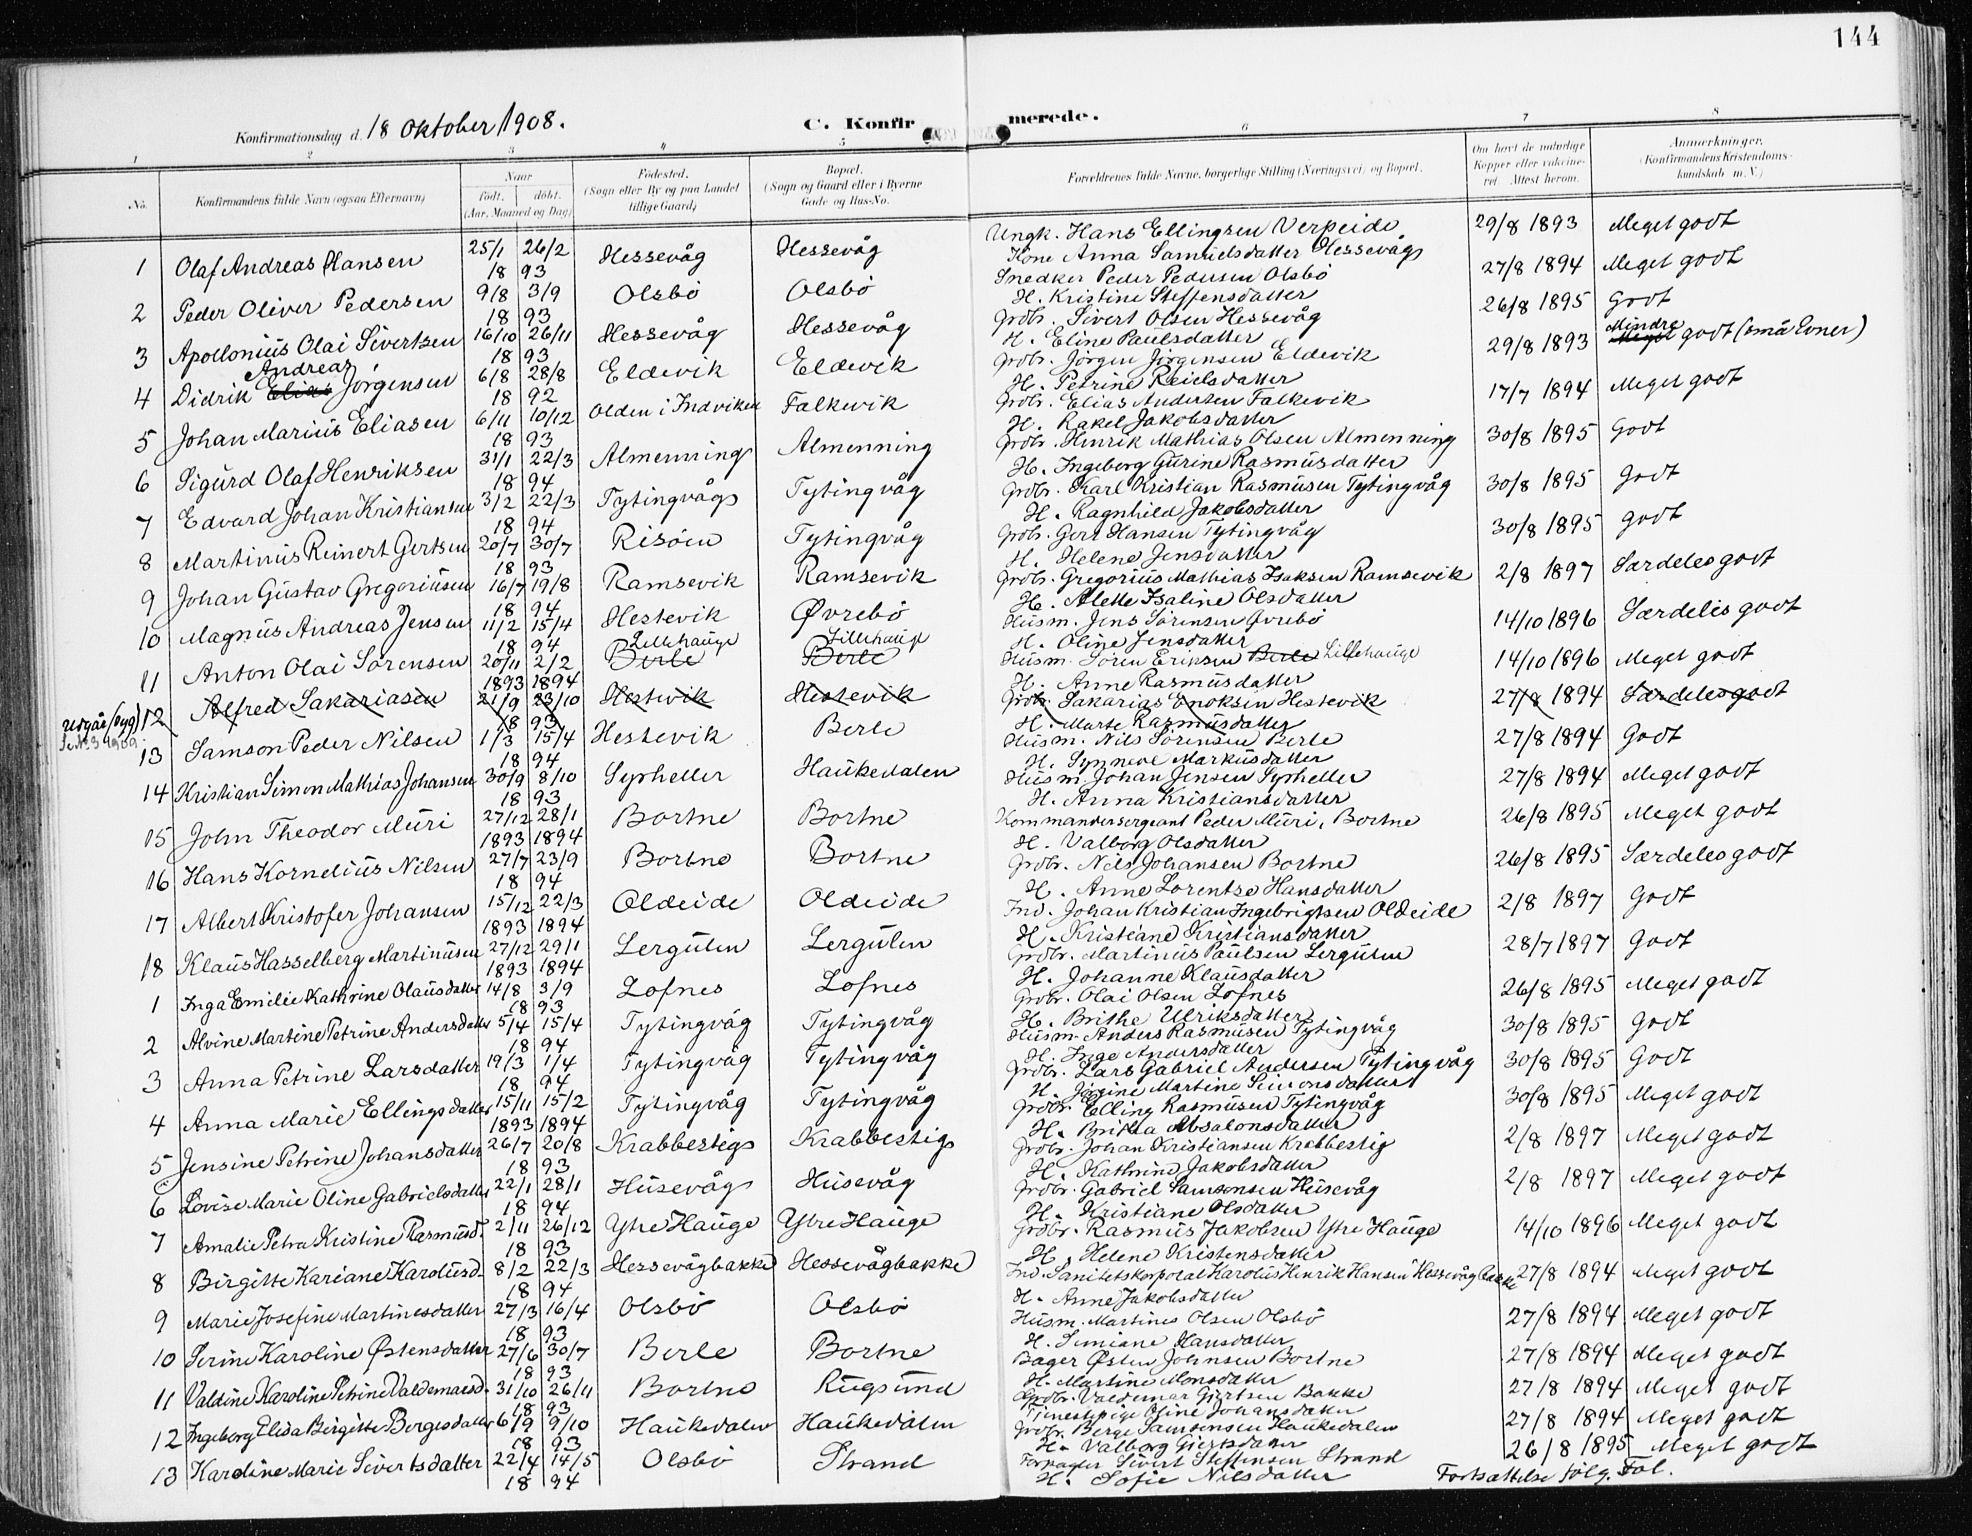 144
Konfirmationsdag d. 18 Oktober 1908.
C. Konfirmerede.
1 2 3 4 5 6 7 8
No. Konfirmandens fulde Navn (ogsaa Efternavn) Naar født. døbt. (Aar, Maaned og Dag) Fødested. (Sogn eller By og paa Landet tillige Gaard) Bopæl. (Sogn og Gaard eller i Byerne Gade og Hus-No. Forældrenes fulde Navne, borgerlige Stilling (Næringsvei) og Bopæl. Om havt de naturlige Kopper eller vaccineret. Attest herom. Anmerkninger. (Konfirmandens Kristendomskundskab m. V.)
1 Olaf Andreas Hansen 25/1 26/2 1893 Hessevåg Hessevåg Ungk. Hans Ellingsen Verpeide 29/8 1893 Meget godt
Kone Anna Samuelsdatter Hessevåg
2 Peder Oliver Pedersen 9/8 3/9 1893 Olsbö Olsbö Snedker Peder Pedersen Olsbö 27/8 1894 Meget godt
H. Kristine Steffensdatter
3 Apollonius Olai Sivertsen 16/10 26/11 1893 Hessevåg Hessevåg Grdbr. Sivert Olsen Hessevåg 26/8 1895 Godt
H. Eline Paulsdatter
4 Didrik Elias Andreas Jörgensen 6/8 28/8 1892 Eldevik Eldevik Grdbr. Jörgen Jörgensen Eldevik 29/8 1893 Meget Mindre godt (små Evner)
H. Petrine Reielsdatter
5 Johan Marius Eliasen 6/11 10/12 1893 Olden i Indviken Falkevik Grdbr. Elias Andersen Falkevik 17/7 1894 Meget godt
H. Rakel Jakobsdatter
6 Sigurd Olaf Henriksen 31/1 22/3 1894 Almenning Almenning Grdbr. Henrik Mathias Olsen Almenning 30/8 1895 Godt
H. Ingeborg Gurine Rasmusdatter
7 Edvard Johan Kristiansen 3/2 22/3 1894 Tytingvåg Tytingvåg Grdbr. Karl Kristian Rasmusen Tytingvåg 30/8 1895 Godt
H. Ragnhild Jakobsdatter
8 Martinus Reinert Gertsen 20/7 30/7 1893 Risöen Tytingvåg Grdbr. Gert Hansen Tytingvåg 30/8 1895 Godt
H. Helene Jensdatter
9 Johan Gustav Gregoriusen 16/7 19/8 1894 Ramsevik Ramsevik Grdbr. Gregorius Mathias Isaksen Ramsevik 2/8 1897 Særdeles godt
H. Alette Isaline Olsdatter
10 Magnus Andreas Jensen 11/2 15/4 1894 Hestevik Øvrebö Husm. Jens Sörensen Øvrebö 14/10 1896 Særdeles godt
H. Oline Jensdatter
11 Anton Olai Sörensen 20/11 2/2 1893 1894 Berle Lillehauge Berle Lillehauge Husm. Sören Eriksen Berle Lillehauge 14/10 1896 Meget godt
H. Anne Rasmusdatter
Udgår (syg) 12 Alfred Sakariasen 21/9 23/10 1893 Hestevik Hestevik Grdbr. Sakarias Enoksen Hestevik 27/8 1894 Særdeles godt
Se No 3 1909. H. Marte Rasmusdatter
13 Samson Peder Nilsen 1/3 15/4 1894 Hestevik Berle Husm. Nils Sörensen Berle 27/8 1894 Godt
H. Synneve Markusdatter
14 Kristian Simon Mathias Johansen 30/9 8/10 1893 Sørheller Haukedalen Husm. Johan Jensen Sørheller 27/8 1894 Meget godt
H. Anna Kristiansdatter
15 John Theodor Muri 27/12 28/1 1893 1894 Bortne Bortne Kommandersergeant Peder Muri, Bortne 26/8 1895 Meget godt
H. Valborg Olsdatter
16 Hans Kornelius Nilsen 27/7 23/9 1894 Bortne Bortne Grdbr. Nils Johansen Bortne 26/8 1895 Særdeles godt
H. Anne Lorentse Hansdatter
17 Albert Kristofer Johansen 15/12 22/3 1893 1894 Oldeide Oldeide Ind. Johan Kristian Ingebrigtsen Oldeide 2/8 1897 Godt
H. Kristiane Kristiansdatter
18 Klaus Hasselberg Martinusen 27/12 29/1 1893 1894 Lergulen Lergulen Grdbr. Martinus Paulsen Lergulen 28/7 1897 Godt
H. Johanne Klausdatter
1 Inga Emilie Kathrine Olausdatter 14/8 3/9 1893 Lofnes Lofnes Grdbr. Olai Olsen Lofnes 26/8 1895 Meget godt
H. Brithe Ulriksdatter
2 Alvine Martine Petrine Andersdatter 5/4 15/4 1894 Tytingvåg Tytingvåg Husm. Anders Rasmusen Tytingvåg 30/8 1895 Godt
H. Inge Andersdatter
3 Anna Petrine Larsdatter 19/3 1/4 1894 Tytingvåg Tytingvåg Grdbr. Lars Gabriel Andersen Tytingvåg 30/8 1895 Godt
H. Jörgine Martine Simonsdatter
4 Anna Marie Ellingsdatter 15/11 15/2 1893 1894 Tytingvåg Tytingvåg Grdbr. Elling Rasmusen Tytingvåg 30/8 1895 Meget godt
H. Britha Absalonsdatter
5 Jensine Petrine Johansdatter 26/7 20/8 1893 Krabbestig Krabbestig Grdbr. Johan Kristiansen Krabbestig 2/8 1897 Meget godt
H. Kathrine Jakobsdatter
6 Lovise Marie Oline Gabrielsdatter 22/1 28/1 1894 Husevåg Husevåg Grdbr. Gabriel Samsonsen Husevåg 2/8 1897 Meget godt
H. Kristiane Olsdatter
7 Amalie Petra Kristine Rasmusd. 2/11 26/12 1893 Ytre Hauge Ytre Hauge Grdbr. Rasmus Jakobsen Ytre Hauge 14/10 1896 Meget godt
H. Helene Kristensdatter
8 Birgitte Kariane Karolusd. 8/2 22/3 1894 Hessevågbakke Hessevågbakke Ind. Sanitetskorporal Karolus Henrik Hansen Hessevågbakke 27/8 1894 Meget godt
H. Anne Jakobsdatter
9 Marie Josefine Martinesdatter 27/3 16/4 1893 Olsbö Olsbö Husm. Martines Olsen Olsbö 27/8 1894 Meget godt
H. Simiane Hansdatter
10 Serine Karoline Østensdatter 27/6 30/7 1893 Berle Bortne Bager Østen Johnsen Bortne 27/8 1894 Meget godt
H. Martine Monsdatter
11 Valdine Karoline Petrine Valdemarsd. 31/10 26/11 1893 Bortne Rugsund Grdbr. Valdemar Giertsen Bakke 27/8 1894 Meget godt
Tjenestepige Oline Johansdatter
12 Ingeborg Elisa Birgitte Bergesdatter 6/9 9/10 1893 Haukedalen Haukedalen Grdbr. Berge Samsonsen Haukedalen 27/8 1894 Meget godt
H. Valborg Giertsdatter
13 Karoline Marie Sivertsdatter 22/4 14/5 1894 Olsbö Strand Forpagter Sivert Steffensen Strand 26/8 1895 Meget godt
H. Sofie Nilsdatter Fortsættelse følg. Fol.